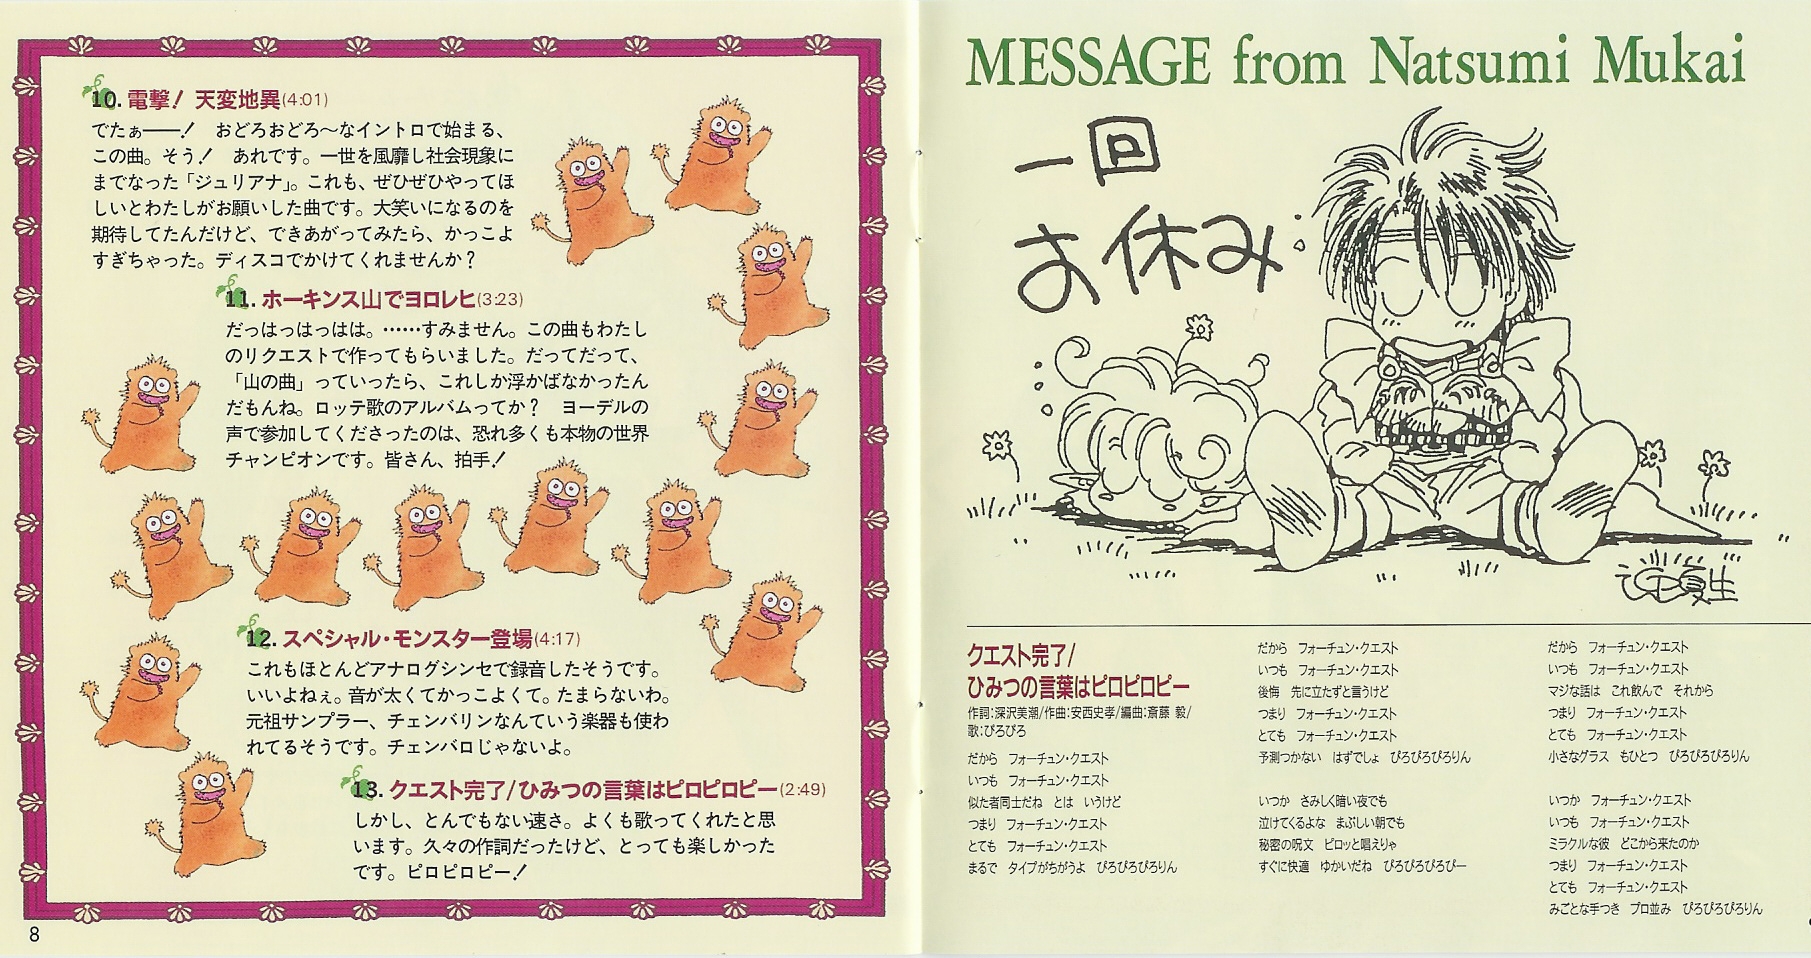 10. 電撃！ 天変地異(4:01)
でたぁ――！ おどろおどろ～なイントロで始まる、
この曲。そう！ あれです。一世を風靡し社会現象に
までなった「ジュリアナ」。これも、ぜひぜひやってほ
しいとわたしがお願いした曲です。大笑いになるのを
期待してたんだけど、できあがってみたら、かっこよ
すぎちゃった。ディスコでかけてくれませんか？
11. ホーキンス山でヨロレヒ(3:23)
だっはっはっはは。……すみません。この曲もわたし
のリクエストで作ってもらいました。だってだって、
「山の曲」っていったら、これしか浮かばなかったん
だもんね。ロッテ歌のアルバムってか？ ヨーデルの
声で参加してくださったのは、恐れ多くも本物の世界
チャンピオンです。皆さん、拍手！
12. スペシャル・モンスター登場(4:17)
これもほとんどアナログシンセで録音したそうです。
いいよねぇ。音が太くてかっこよくて。たまらないわ。
元祖サンプラー、チェンバリンなんていう楽器も使わ
れてるそうです。チェンバロじゃないよ。
13. クエスト完了/ひみつの言葉はピロピロピー(2:49)
しかし、とんでもない速さ。よくも歌ってくれたと思
います。久々の作詞だったけど、とっても楽しかった
です。ピロピロピー！
8
MESSAGE from Natsumi Mukai
一回
お休み
迎夏生
クエスト完了/
ひみつの言葉はピロピロピー
作詞：深沢美潮/作曲：安西史孝/編曲：斎藤 毅/
歌：ぴろぴろ
だから フォーチュン・クエスト
いつも フォーチュン・クエスト
似た者同士だね とは いうけど
つまり フォーチュン・クエスト
とても フォーチュン・クエスト
まるで タイプがちがうよ ぴろぴろぴろりん
だから フォーチュン・クエスト
いつも フォーチュン・クエスト
後悔 先に立たずと言うけど
つまり フォーチュン・クエスト
とても フォーチュン・クエスト
予測つかない はずでしょ ぴろぴろぴろりん
いつか さみしく暗い夜でも
泣けてくるよな まぶしい朝でも
秘密の呪文 ピロッと唱えりゃ
すぐに快適 ゆかいだね ぴろぴろぴろぴー
だから フォーチュン・クエスト
いつも フォーチュン・クエスト
マジな話は これ飲んで それから
つまり フォーチュン・クエスト
とても フォーチュン・クエスト
小さなグラス もひとつ ぴろぴろぴろりん
いつか フォーチュン・クエスト
いつも フォーチュン・クエスト
ミラクルな彼 どこから来たのか
つまり フォーチュン・クエスト
とても フォーチュン・クエスト
みごとな手つき プロ並み ぴろぴろぴろりん